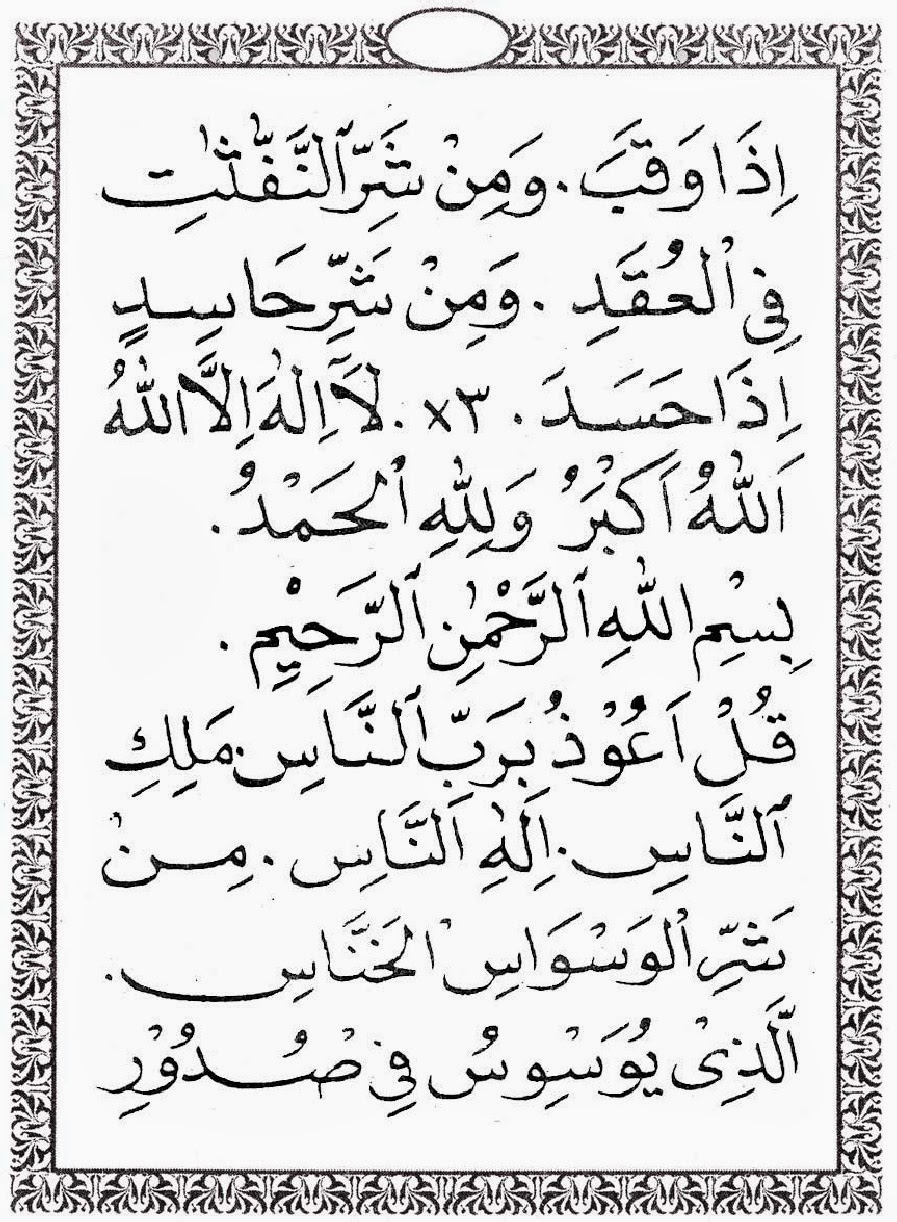 اِذَا وَقَبَ. وَمِنْ شَرِّ ٱلنَّفّٰثٰتِ
فِى ٱلْعُقَدِ. وَمِنْ شَرِّ حَاسِدٍ
اِذَا حَسَدَ. ٣×. لَآ اِلٰهَ اِلَّا اللّٰهُ
اَللّٰهُ اَكْبَرُ وَلِلّٰهِ ٱلْحَمْدُ.
بِسْمِ اللّٰهِ ٱلرَّحْمٰنِ ٱلرَّحِيْمِ.
قُلْ اَعُوْذُ بِرَبِّ ٱلنَّاسِ. مَلِكِ
ٱلنَّاسِ. اِلٰهِ ٱلنَّاسِ. مِنْ
شَرِّ ٱلْوَسْوَاسِ ٱلْخَنَّاسِ.
اَلَّذِىْ يُوَسْوِسُ فِىْ صُدُوْرِ